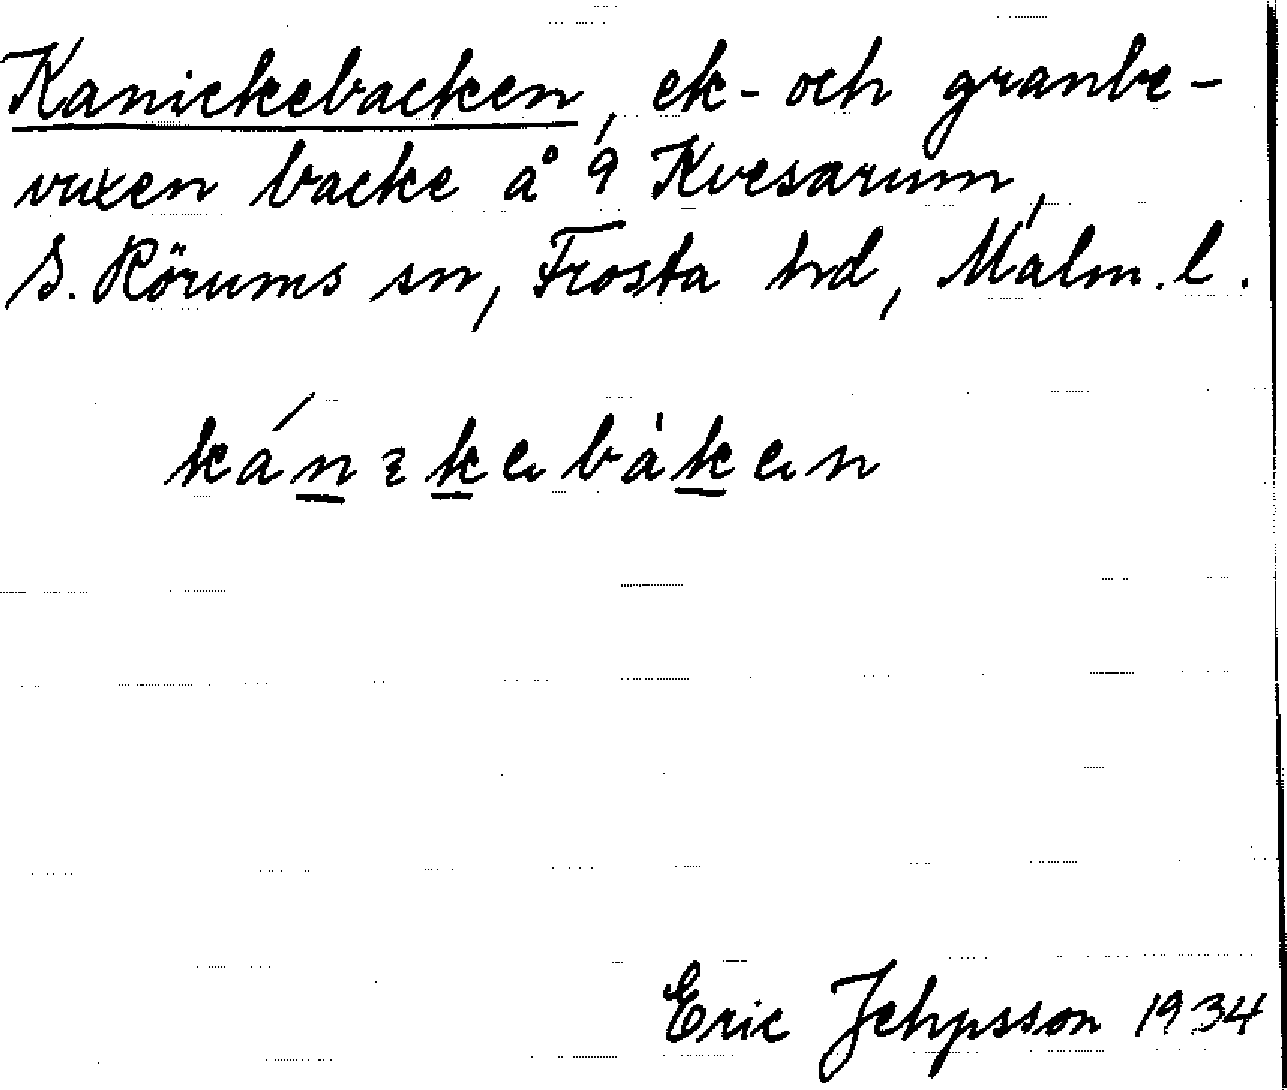 Kanickebacken, ek- och granbe-
vuxen backe å 9 Kvesarum,
S. Rörums sn, Frosta hd, Malm. l.
kánıkebàken
Eric Jehpsson 1934